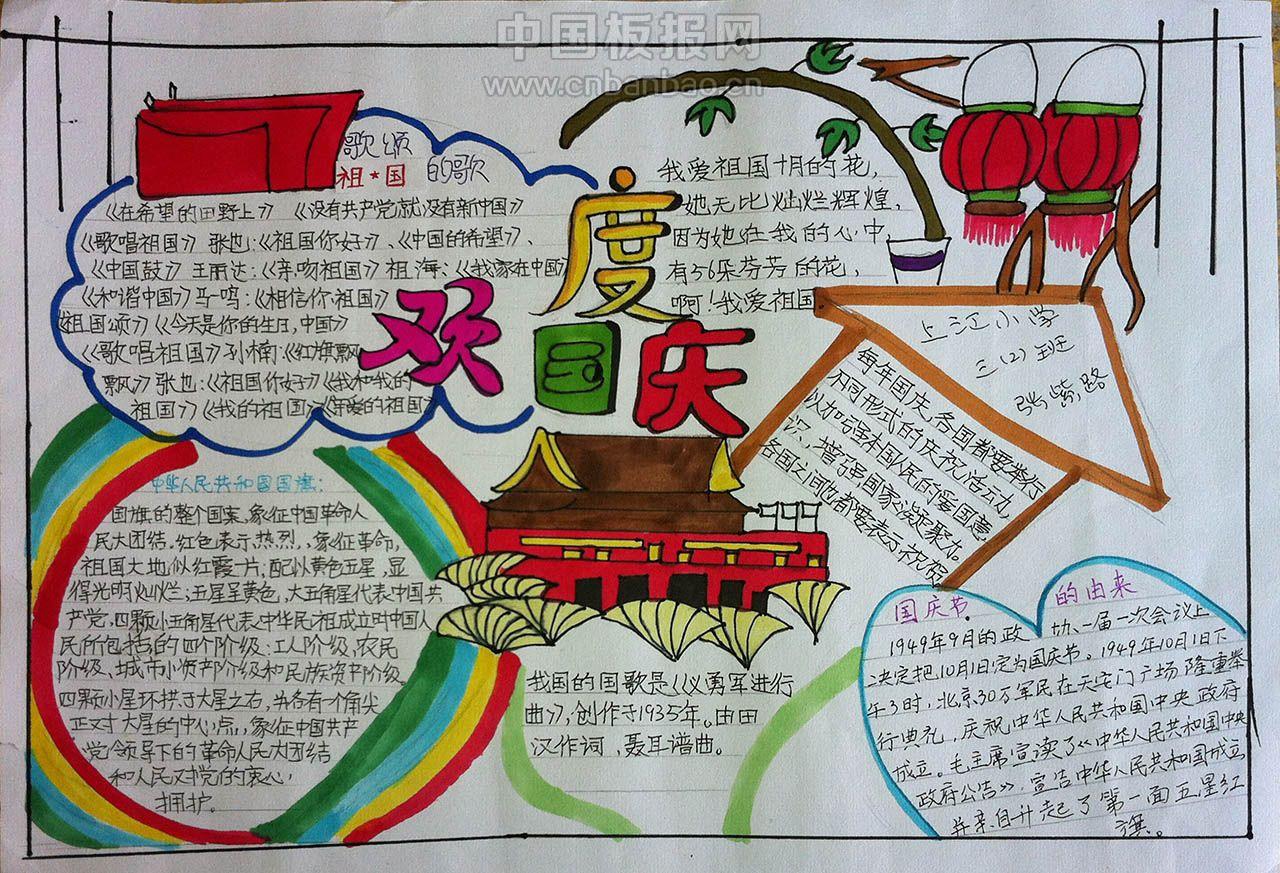 中国板报网
www.cnbanbao.cn
歌颂
祖★国 的歌
《在希望的田野上》 《没有共产党就没有新中国》
《歌唱祖国》 张也:《祖国你好》、《中国的希望》、
《中国鼓》 王丽达:《亲吻祖国》 祖海:《我家在中国》
《和谐中国》 马鸣:《相信你,祖国》
《祖国颂》《今天是你的生日,中国》
《歌唱祖国》 孙楠:《红旗飘
飘》 张也:《祖国你好》《我和我的
祖国》《我的祖国》《亲爱的祖国》
欢度
国庆
我爱祖国十月的花,
她无比灿烂辉煌,
因为她在我的心中,
有56朵芬芳的花,
啊!我爱祖国
上江小学
三(2)班
张紫路
每年国庆,各国都要举行
不同形式的庆祝活动,
以加强本国人民的爱国意
识,增强国家凝聚力。
各国之间也都要表示祝贺
中华人民共和国国旗:
国旗的整个图案,象征中国革命人
民大团结。红色表示热烈,象征革命,
祖国大地似红霞一片;配以黄色五星,显
得光明灿烂;五星呈黄色,大五角星代表中国共
产党,四颗小五角星代表中华民祖成立时中国人
民所包括的四个阶级:工人阶级、农民
阶级、城市小资产阶级和民族资产阶级。
四颗小星环拱于大星之右,并各有一个角尖
正对大星的中心点,象征中国共产
党领导下的革命人民大团结
和人民对党的衷心
拥护。
我国的国歌是《义勇军进行
曲》,创作于1935年。由田
汉作词,聂耳谱曲。
国庆节 的由来
1949年9月的政协一届一次会议上
决定把10月1日定为国庆节。1949年10月1日下
午3时,北京30万军民在天安门广场隆重举
行典礼,庆祝中华人民共和国中央政府
成立。毛主席宣读了《中华人民共和国中央
政府公告》,宣告中华人民共和国成立,
并亲自升起了第一面五星红
旗。